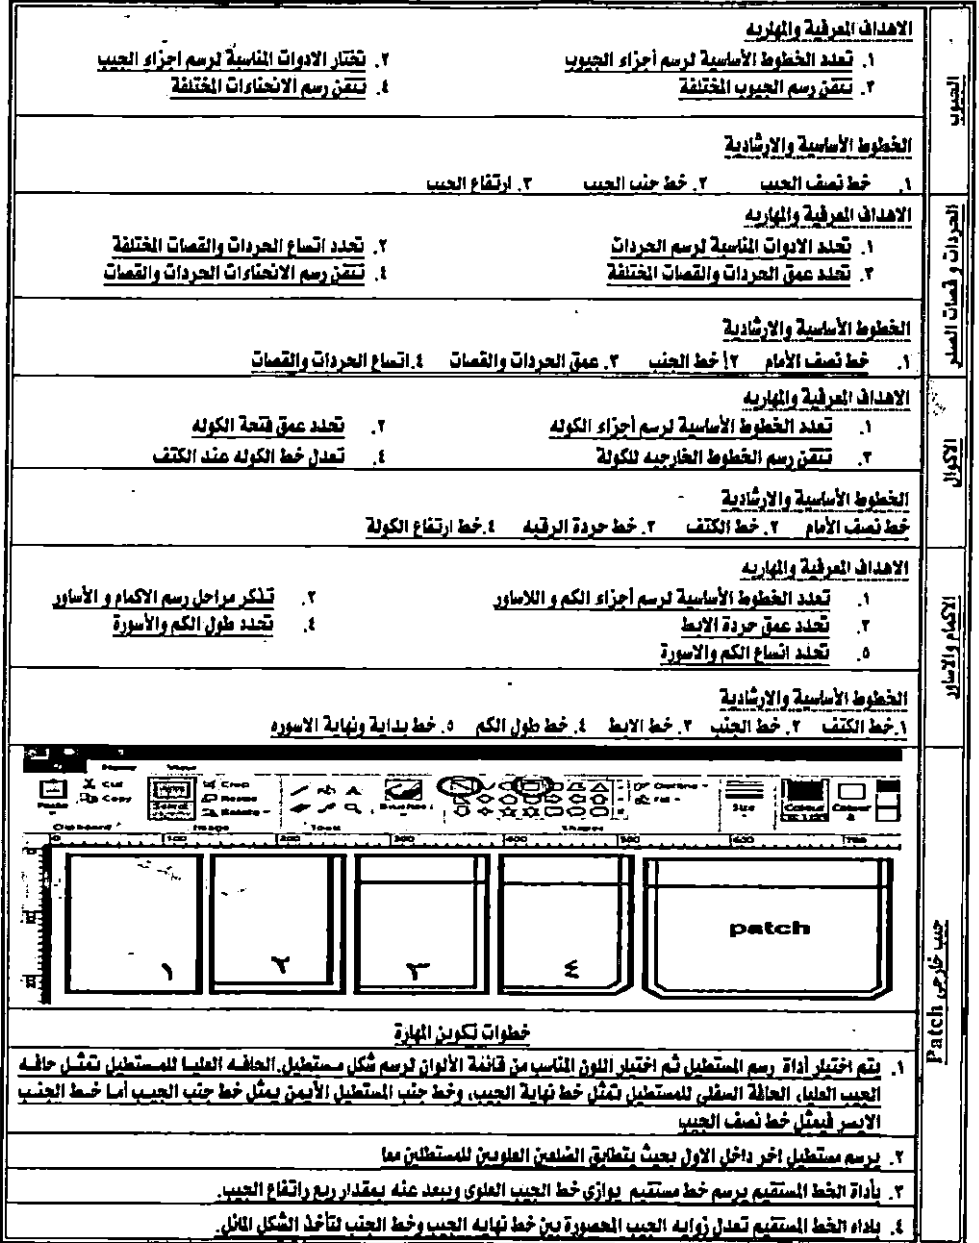 الجيوب
الاهداف المعرفية والمهاريه
١. تعدد الخطوط الأساسية لرسم أجزاء الجيوب
٢. تختار الادوات المناسبة لرسم اجزاء الجيب
٣. تتقن رسم الجيوب المختلفة
٤. تتقن رسم الانحناءات المختلفة
الخطوط الأساسية والارشادية
١. خط نصف الجيب ٢. خط جنب الجيب ٣. ارتفاع الجيب
الحردات و قصات الصدر
الاهداف المعرفية والمهاريه
١. تحدد الادوات المناسبة لرسم الحردات
٢. تحدد اتساع الحردات والقصات المختلفة
٣. تحدد عمق الحردات والقصات المختلفة
٤. تتقن رسم الانحناءات الحردات والقصات
الخطوط الأساسية والارشادية
١. خط نصف الأمام ٢. خط الجنب ٣. عمق الحردات والقصات ٤.اتساع الحردات والقصات
الاكوال
الاهداف المعرفية والمهاريه
١. تعدد الخطوط الأساسية لرسم أجزاء الكوله
٢. تحدد عمق فتحة الكوله
٣. تتقن رسم الخطوط الخارجيه للكولة
٤. تعدل خط الكوله عند الكتف
الخطوط الأساسية والارشادية
خط نصف الأمام ٢. خط الكتف ٣. خط حردة الرقبه ٤.خط ارتفاع الكولة
الاكمام والاساور
الاهداف المعرفية والمهاريه
١. تعدد الخطوط الأساسية لرسم أجزاء الكم و اللاساور
٢. تذكر مراحل رسم الاكمام و الأساور
٣. تحدد عمق حردة الابط
٤. تحدد طول الكم والأسورة
٥. تحدد اتساع الكم والاسورة
الخطوط الأساسية والارشادية
١.خط الكتف ٢. خط الجنب ٣. خط الابط ٤. خط طول الكم ٥. خط بداية ونهاية الاسوره
جيب خارجي Patch
Home View
Paste Cut Copy Select Crop Resize Rotate Brushes Outline Fill Size Colour Colour
Clipboard Image Tools Shapes
100 200 300 400 500 600 700
١ ٢ ٣ ٤ patch
خطوات تكوين المهارة
١. يتم اختيار أداة رسم المستطيل ثم اختيار اللون المناسب من قائمة الألوان لرسم شكل مستطيل.الحافه العليا للمستطيل تمثل حافه
الجيب العليا، الحافة السفلي للمستطيل تمثل خط نهاية الجيب، وخط جنب المستطيل الأيمن يمثل خط جنب الجيب أما خط الجنب
الايسر فيمثل خط نصف الجيب
٢. يرسم مستطيل اخر داخل الاول بحيث يتطابق الضلعين العلويين للمستطلين معا
٣. بأداة الخط المستقيم يرسم خط مستقيم يوازي خط الجيب العلوى ويبعد عنه بمقدار ربع راتفاع الجيب.
٤. باداه الخط المستقيم تعدل زوايه الجيب المحصورة بين خط نهايه الجيب وخط الجنب لتأخذ الشكل المائل.